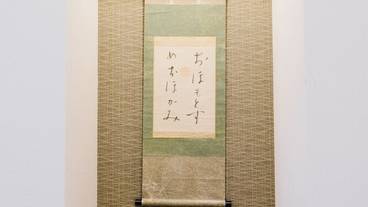 おほもとす
めおほかみ